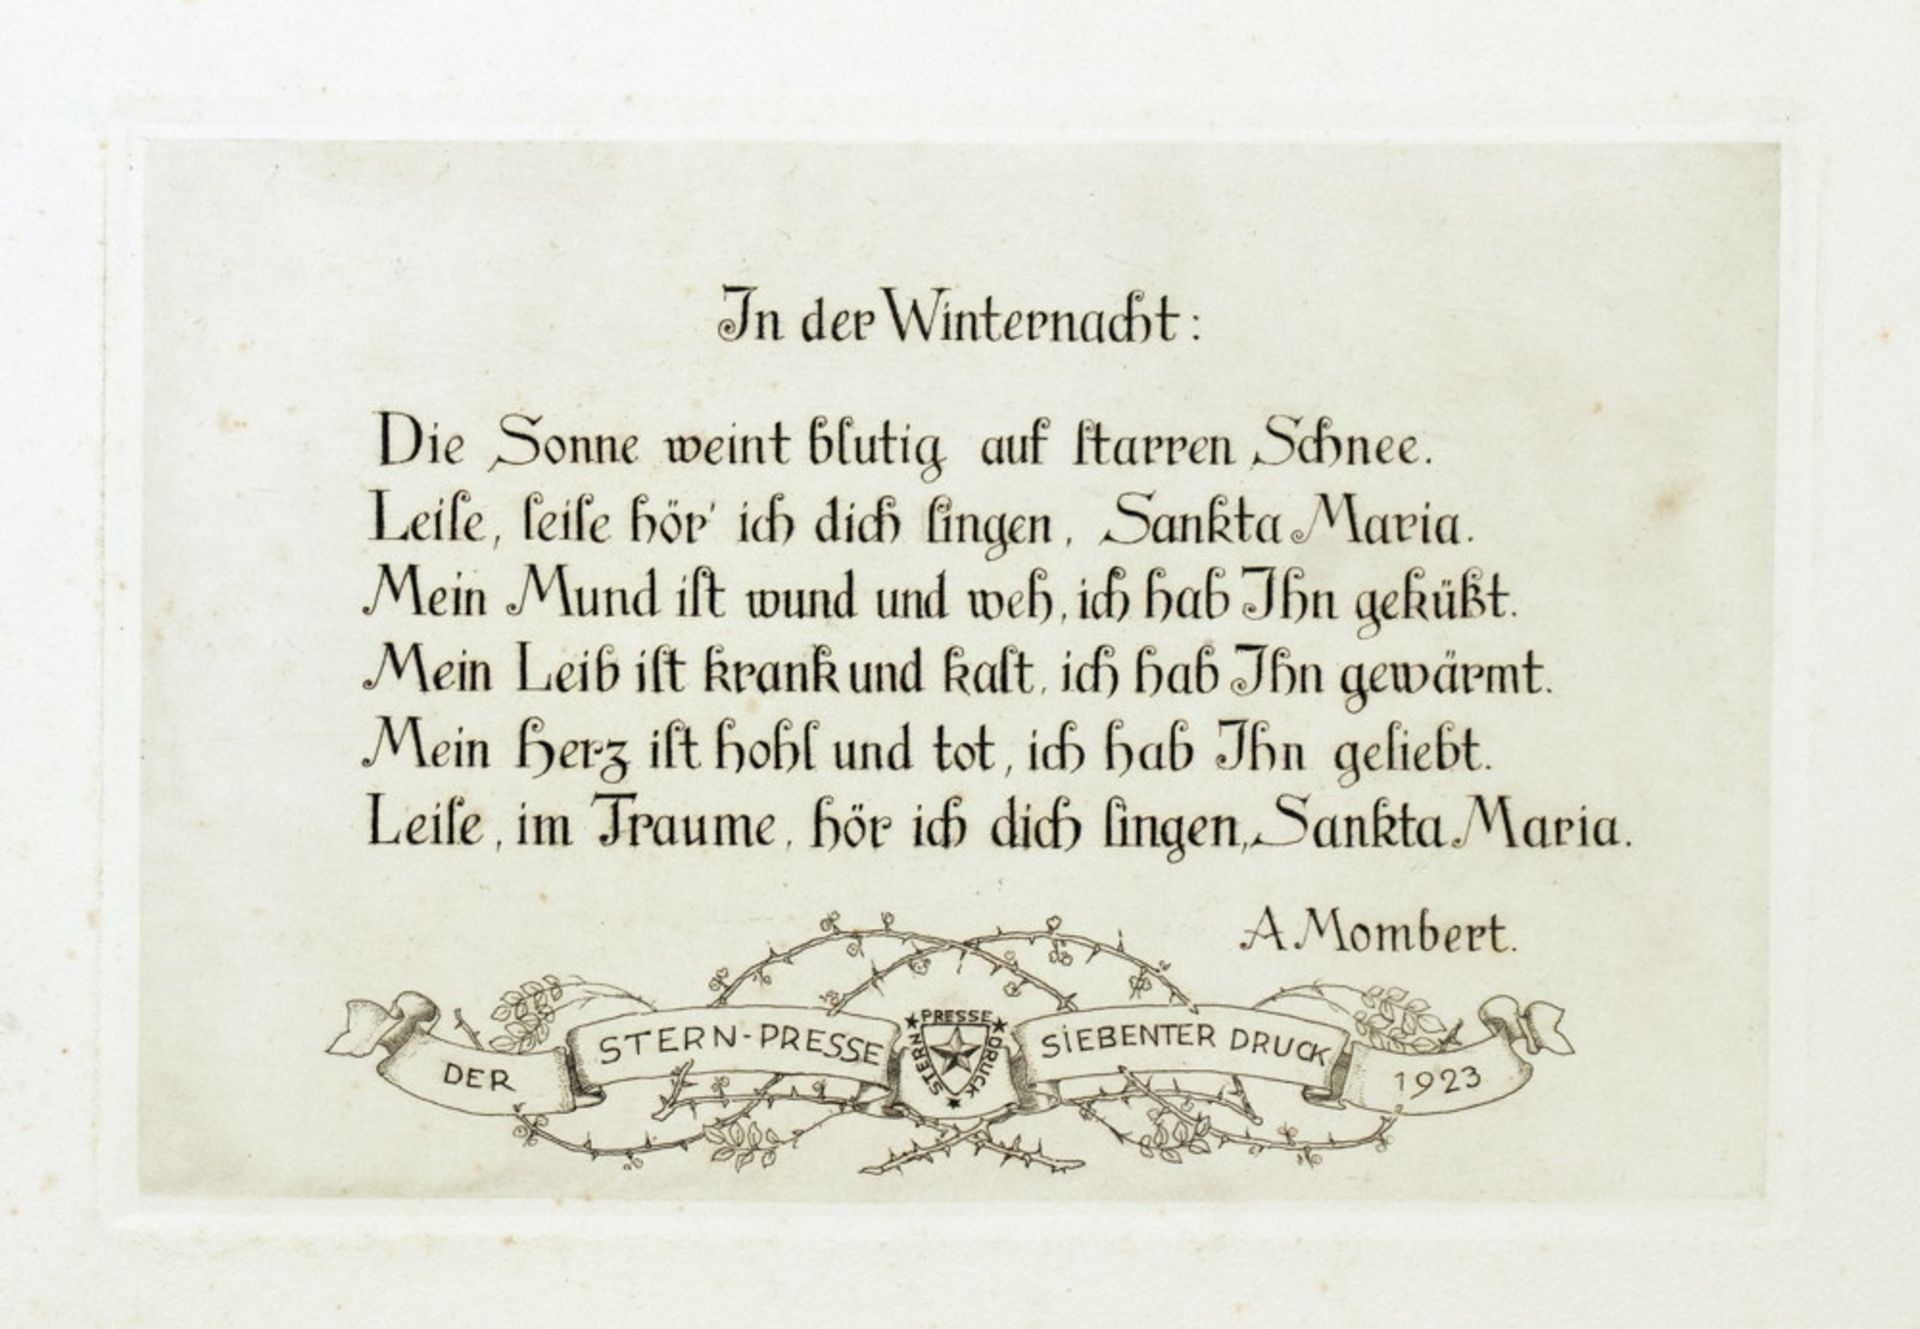 In der Winternacht:
Die Sonne weint blutig auf starren Schnee.
Leise, leise hör' ich dich singen, Sankta Maria.
Mein Mund ist wund und weh, ich hab Ihn geküßt.
Mein Leib ist krank und kalt, ich hab Ihn gewärmt.
Mein Herz ist hohl und tot, ich hab Ihn geliebt.
Leise, im Traume, hör ich dich singen, Sankta Maria.
A Mombert.
DER STERN-PRESSE SIEBENTER DRUCK 1923
STERN PRESSE DRUCK